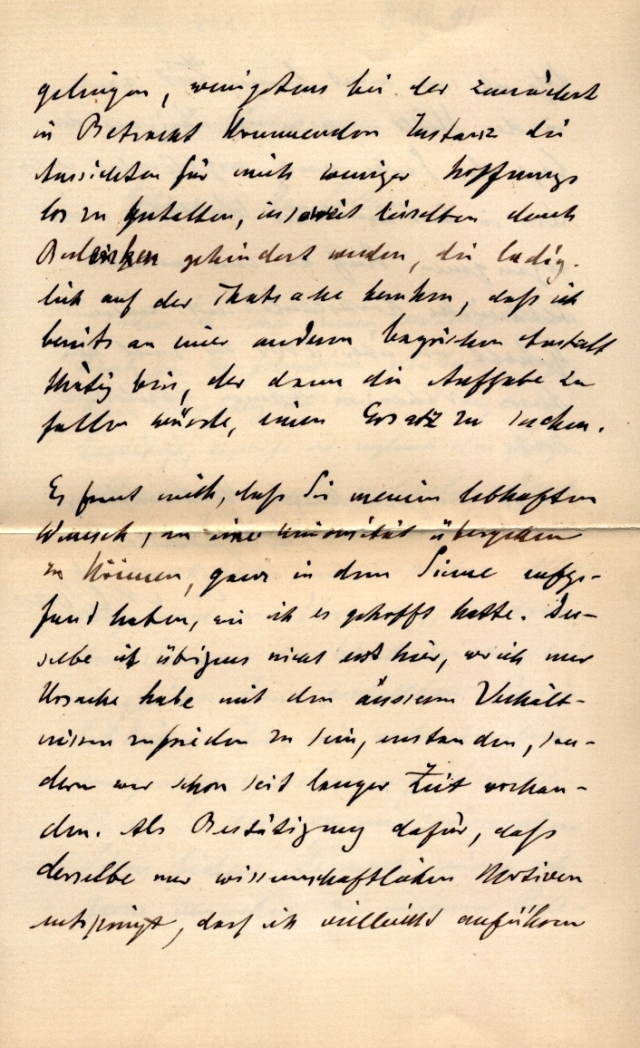 gelingen, wenigstens bei der zunächst
in Betracht kommenden Instanz die
Aussichten für mich weniger hoffnungs
los zu gestalten, insoweit dieselben durch
Bedenken gehindert werden, die ledig-
lich auf der Thatsache beruhen, daß ich
bereits an einer anderen bayrischen Anstalt
thätig bin, der dann die Aufgabe zu
fallen würde, einen Ersatz zu suchen.
Es freut mich, daß Sie meinen lebhaften
Wunsch, an eine Universität übergehen
zu können, ganz in dem Sinne aufge-
faßt haben, wie ich es gehofft hatte. Der-
selbe ist übrigens nicht erst hier, wo ich nur
Ursache habe mit den äusseren Verhält-
nissen zufrieden zu sein, entstanden, son-
dern war schon seit langer Zeit vorhan-
den. Als Bestätigung dafür, daß
derselbe nur wissenschaftlichen Motiven
entspringt, darf ich vielleicht anführen